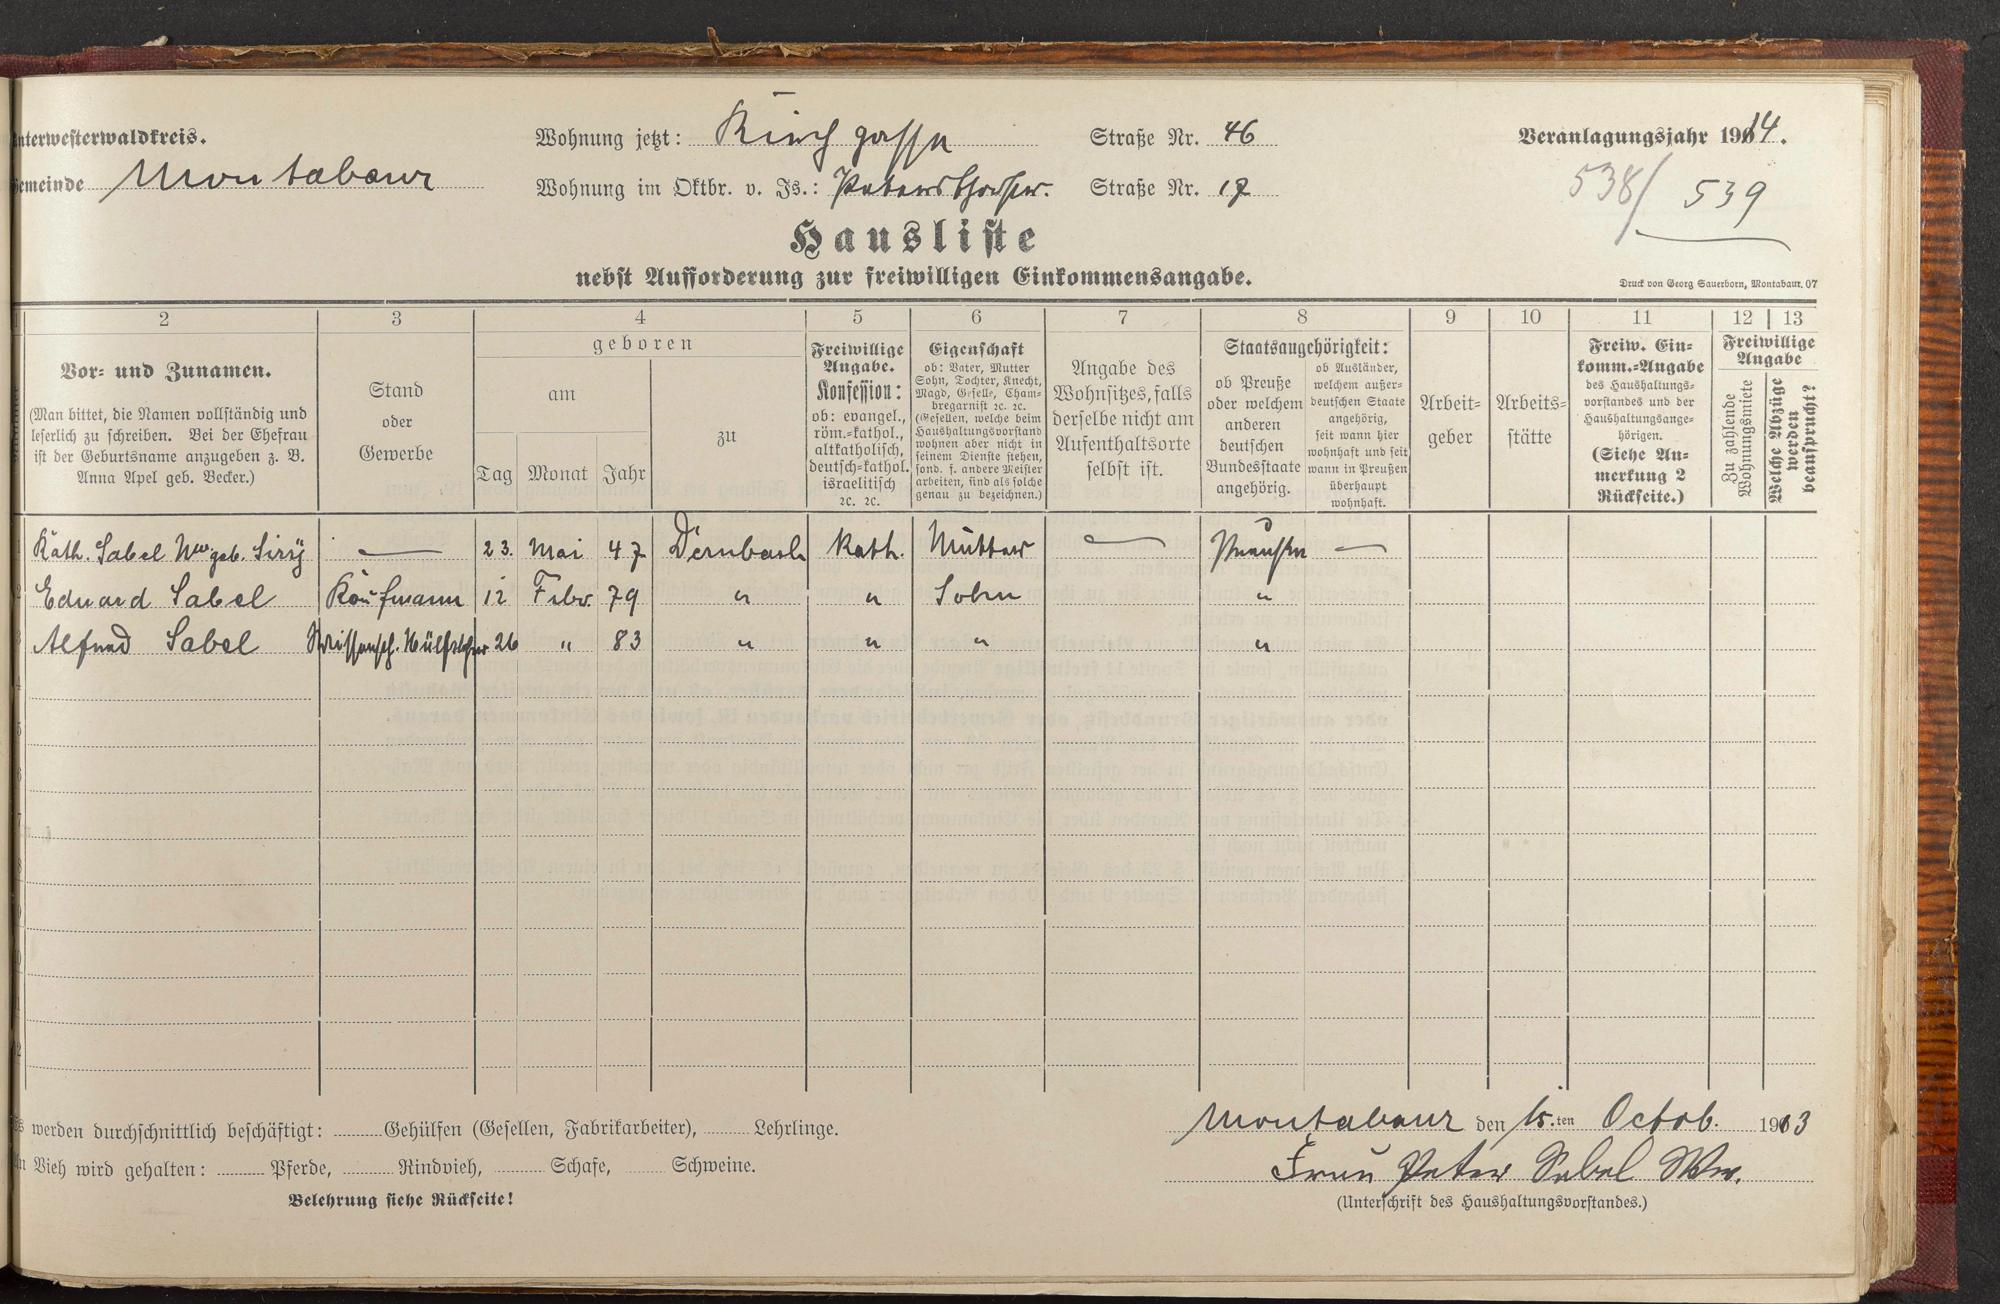 Unterwesterwaldkreis.
Wohnung jetzt: Kirchgasse Straße Nr. 46
Veranlagungsjahr 1914.
Gemeinde Montabaur
Wohnung im Oktbr. v. Js.: Straße Nr. 17
538/ 539
Hausliste
nebst Aufforderung zur freiwilligen Einkommensangabe.
Druck von Georg Sauerborn, Montabaur. 07
2 3 4 5 6 7 8 9 10 11 12 13
Vor- und Zunamen.
(Man bittet, die Namen vollständig und
leserlich zu schreiben. Bei der Ehefrau
ist der Geburtsname anzugeben z. B.
Anna Apel geb. Becker.)
Stand
oder
Gewerbe
geboren
am
Tag Monat Jahr
zu
Freiwillige
Angabe.
Konfession:
ob: evangel.,
röm.-kathol.,
altkatholisch,
deutsch-kathol.
israelitisch
ꝛc. ꝛc.
Eigenschaft
ob: Vater, Mutter
Sohn, Tochter, Knecht,
Magd, Geselle, Cham-
bregarnist ꝛc. ꝛc.
(Gesellen, welche beim
Haushaltungsvorstand
wohnen aber nicht in
seinem Dienste stehen,
sond. f. andere Meister
arbeiten, sind als solche
genau zu bezeichnen.)
Angabe des
Wohnsitzes, falls
derselbe nicht am
Aufenthaltsorte
selbst ist.
Staatsangehörigkeit:
ob Preuße
oder welchem
anderen
deutschen
Bundesstaate
angehörig.
ob Ausländer,
welchem außer-
deutschen Staate
angehörig,
seit wann hier
wohnhaft und seit
wann in Preußen
überhaupt
wohnhaft.
Arbeit-
geber
Arbeits-
stätte
Freiw. Ein-
komm.-Angabe
des Haushaltungs-
vorstandes und der
Haushaltungsange-
hörigen.
(Siehe An-
merkung 2
Rückseite.)
Freiwillige
Angabe
Zu zahlende
Wohnungsmiete
Welche Abzüge
werden
beansprucht?
Kath. Sabel Wwe geb. — 23. Mai 47 Dernbach Kath. Mutter — Preußen —
2 Eduard Sabel Kaufmann 12 Febr. 79 " " Sohn "
3 Alfred Sabel Wissensch. Hülfslehrer 26 " 83 " " " "
4
5
6
7
8
9
10
11
12
Es werden durchschnittlich beschäftigt: Gehülfen (Gesellen, Fabrikarbeiter), Lehrlinge.
An Vieh wird gehalten: Pferde, Rindvieh, Schafe, Schweine.
Belehrung siehe Rückseite!
Montabaur den 15.ten Octob. 1913
Frau Peter Sabel Ww.
(Unterschrift des Haushaltungsvorstandes.)